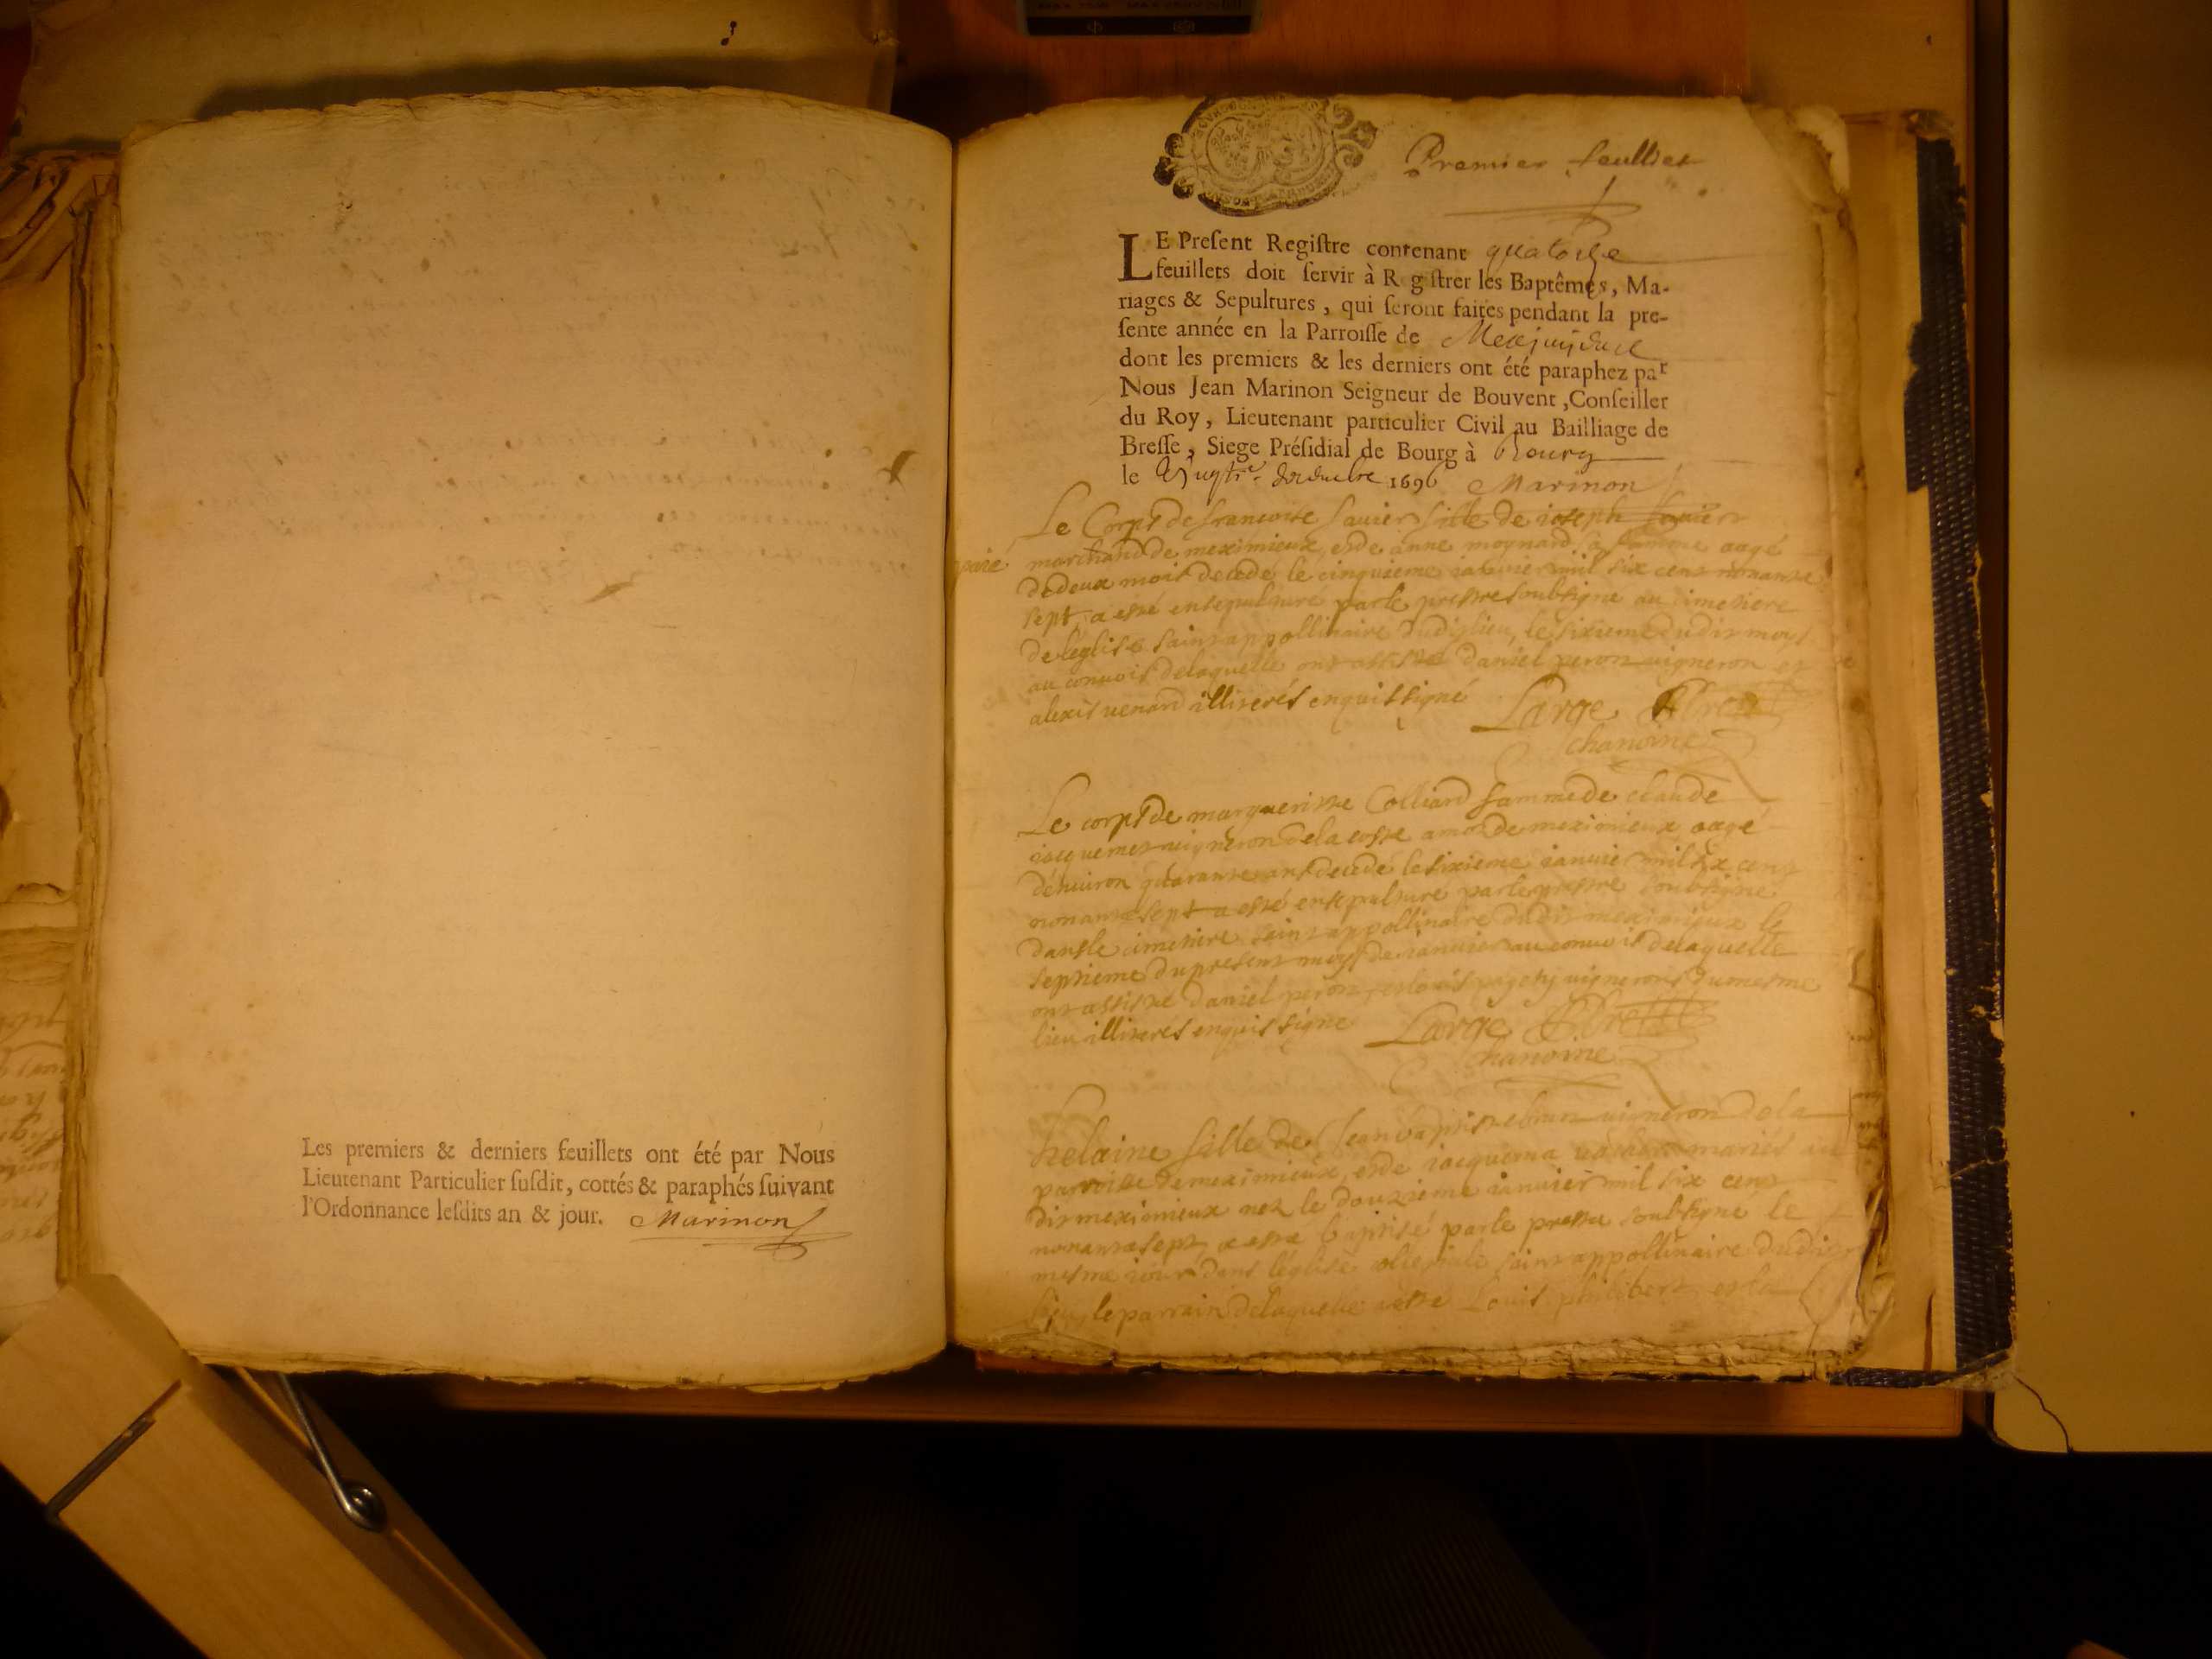 Les premiers & derniers feuillets ont été par Nous
Lieutenant Particulier ſuſdit, cottés & paraphés ſuivant
l'Ordonnance leſdits an & jour. Marinon
Premier feulliet
LE Preſent Regiſtre contenant quatorze
feuillets doit ſervir à R g ſtrer les Baptêmes, Ma-
riages & Sepultures, qui ſeront faites pendant la pre-
ſente année en la Parroiſſe de
dont les premiers & les derniers ont été paraphez par
Nous Jean Marinon Seigneur de Bouvent, Conſeiller
du Roy, Lieutenant particulier Civil au Bailliage de
Breſſe, Siege Préſidial de Bourg à Bourg
le 1696 Marinon
Le Corps de francoise fauier fille de ioseph fauier
marchand de meximieux, et de anne moynard sa famme aagé
paié
de deux mois decedé le cinquieme ianuier mil six cent nonante
sept, a esté ensepulturé par le prestre soubsigné au cimetiere
de léglise saint appollinaire dudit lieu, le sixieme dudit moys
au conuois de laquelle ont assisté daniel peron uigneron et
alexis uenard illiterés enquis signé Large Pbre
chanoine
Le corps de margueritte Colliard famme de claude
iacquemet uigneron de la coste amon de meximieux aagé
dénuiron quarante ans decedé le sixieme ianuier mil six cent
nonante sept a esté ensepulturé par le prestre soubsigné
dans le cimetiere saint appollinaire dudit meximieux le
septieme du present moys de ianuier au conuois de laquelle
ont assisté daniel peron, et louis uignerons du mesme
lieu illiterés enquis signé Large Pbre
chanoine
helaine fille de Jean baptiste uigneron de la
parroisse de meximieux, et de iacquema mariés au
dit meximieux nez le douzieme ianuier mil six cent
nonante sept, a esté baptisé par le prestre soubsigné le
mesme iour dans léglise collegiale saint appollinaire dudit
lieu, le parrain de laquelle a esté Louis philibert, et la